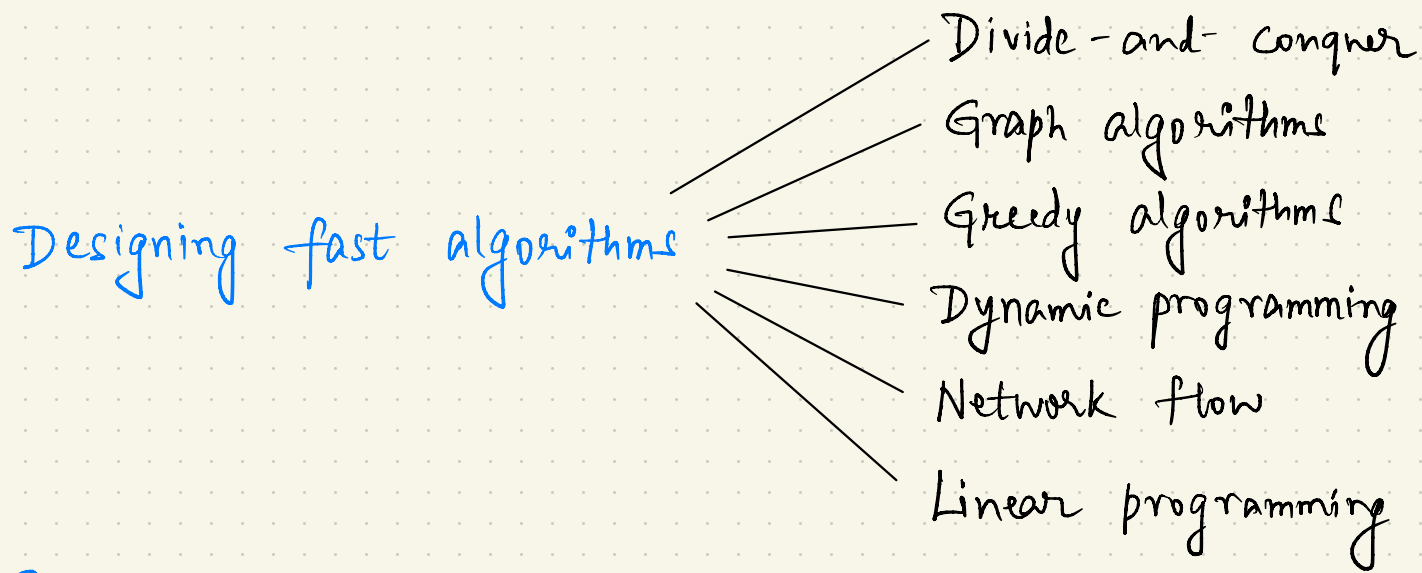 Designing fast algorithms
Divide-and-conquer
Graph algorithms
Greedy algorithms
Dynamic programming
Network flow
Linear programming